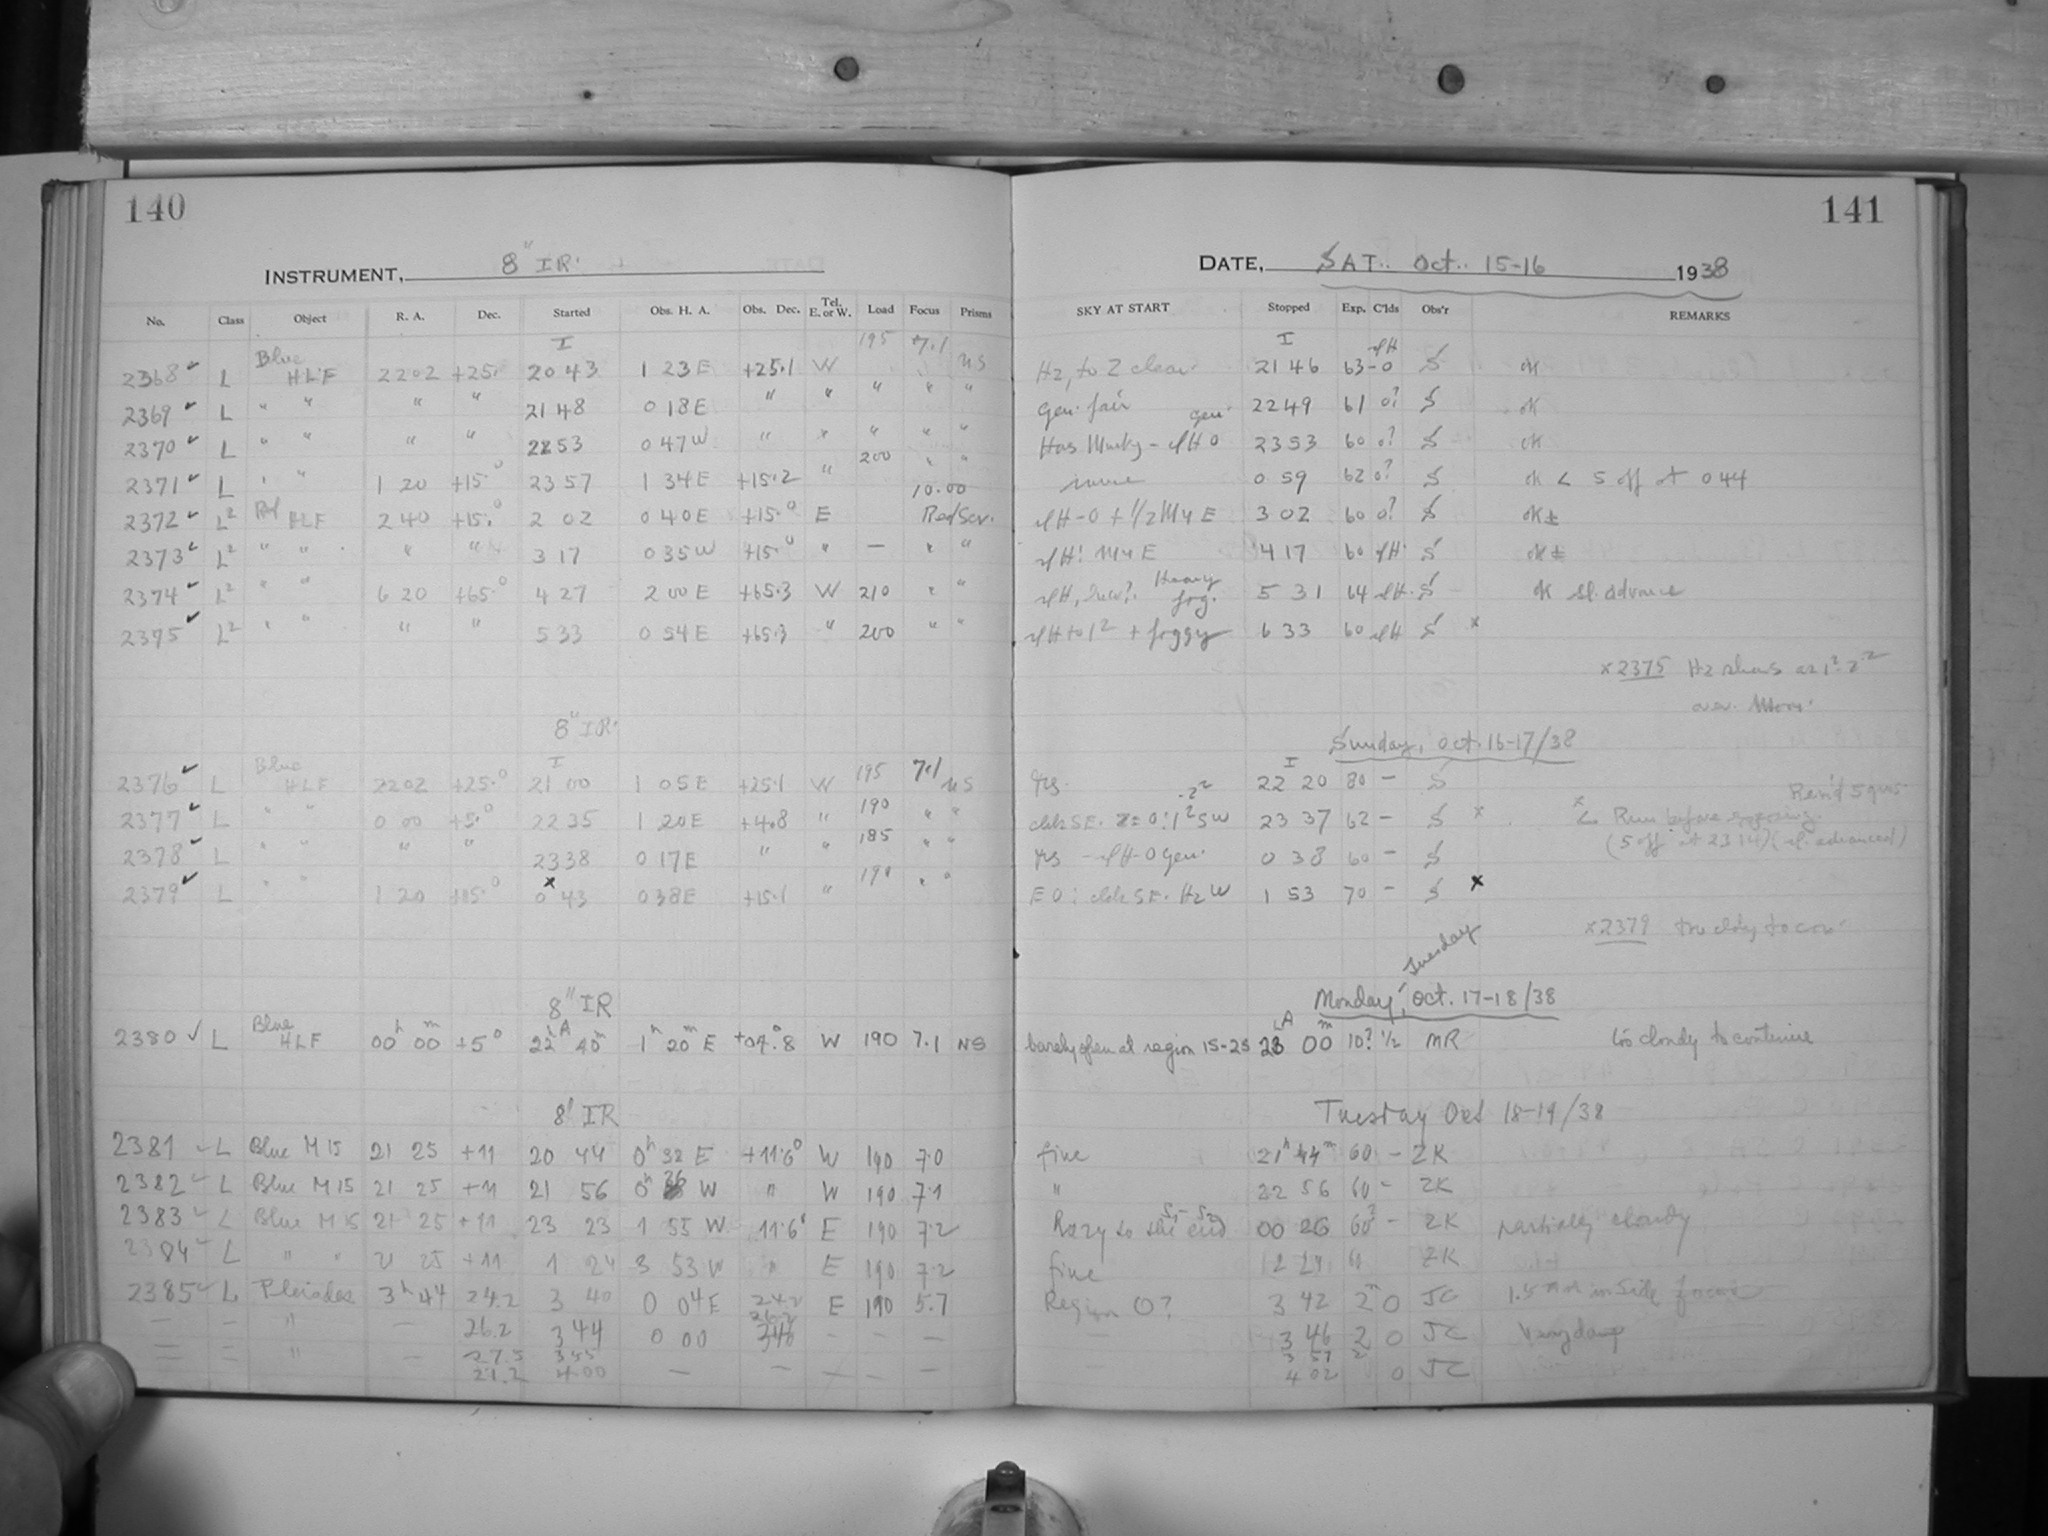 140
141
INSTRUMENT, 8" IR.
DATE, SAT.. Oct.. 15-16 1938
No. Class Object R. A. Dec. Started Obs. H. A. Obs. Dec. Tel. E. or W. Load Focus Prisms SKY AT START Stopped Exp. C'lds Obs'r REMARKS
2368 ✓ L Blue HLF 2202 +25.° I 20 43 1 23 E +25.1 W 195 7.1 NS Hz, to Z clear I 21 46 63 -0 S OK
2369 ✓ L " " " " 21 48 0 18 E " " " " " Gen. fair 22 49 61 0? S OK
2370 ✓ L " " " " 22 53 0 47 W " " " " " Has Murky - 0 gen. 23 53 60 0? S OK
2371 ✓ L " " 1 20 +15.° 23 57 1 34 E +15.2 " 200 " " 0 59 62 0? S OK < 5 off at 0 44
2372 ✓ L² Red HLF 2 40 +15.° 2 02 0 40 E +15.° E 10.00 Red Scr. 3 02 60 0? S OK±
2373 ✓ L² " " " " 3 17 0 35 W +15.° " — " " 4 17 60 S OK±
2374 ✓ L² " " 6 20 +65.° 4 27 2 00 E +65.3 W 210 " " Heavy fog. 5 31 64 S OK sl. advance
2375 ✓ L² " " " " 5 33 0 54 E +65.3 " 200 " " + foggy 6 33 60 S x
x 2375 Hz shows as 1²-2²
over
8" IR. Sunday, Oct. 16-17/38
2376 ✓ L Blue HLF 2202 +25.° I 21 00 1 05 E +25.1 W 195 7.1 NS I 22 20 80 - S
2377 ✓ L " " 0 00 +5.° 22 35 1 20 E +4.8 " 190 " " clds SE. Z=0: 1² SW 23 37 62 - S x Run before exposing.
(5 off at 23 14) (sl. advanced)
2378 ✓ L " " " " 23 38 0 17 E " " 185 " " 0 gen. 0 38 60 - S
2379 ✓ L " " 1 20 +15.° x 0 43 0 38 E +15.1 " 190 " " E 0: clds SE. Hz W 1 53 70 - S x
x 2379 too cldy to con.
8" IR Monday, Tuesday Oct. 17-18/38
2380 ✓ L Blue HLF 00ʰ 00ᵐ +5° 22ʰ A 40ᵐ 1ʰ 20ᵐ E +04°.8 W 190 7.1 NS barely open at region 15-25 23ʰ A 00ᵐ 10? 1/2 MR too cloudy to continue
8" IR Tuesday Oct 18-19/38
2381 ✓ L Blue M 15 21 25 +11 20 44 0ʰ 38 E +11.6° W 190 7.0 fine 21ʰ 44ᵐ 60 - ZK
2382 ✓ L Blue M 15 21 25 +11 21 56 0ʰ 36 W " W 190 7.1 " 22 56 60 - ZK
2383 ✓ L Blue M 15 21 25 +11 23 23 1 55 W 11.6° E 190 7.2 Hazy to the end S₁-S₂ 00 26 60? - ZK partially cloudy
2384 ✓ L " " 21 25 +11 1 24 3 53 W " E 190 7.2 fine ZK
2385 ✓ L Pleiades 3ʰ 44 24.2 3 40 0 04 E 24.2 E 190 5.7 Region 0? 3 42 2ᵐ 0 JC 1.5 mm inside focus
— — " — 26.2 3 44 0 00 26.2 — — — — 3 46 2 0 JC Very damp
27.5 3 55 3 57 2
— — " — 21.2 4 00 — — — — — 4 02 0 JC